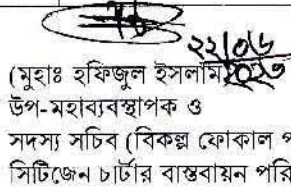 ২২/০৬/২০২৩
(মুহাঃ হফিজুল ইসলাম)
উপ-মহাব্যবস্থাপক ও
সদস্য সচিব (বিকল্প ফোকাল প
সিটিজেন চার্টার বাস্তবায়ন পরি